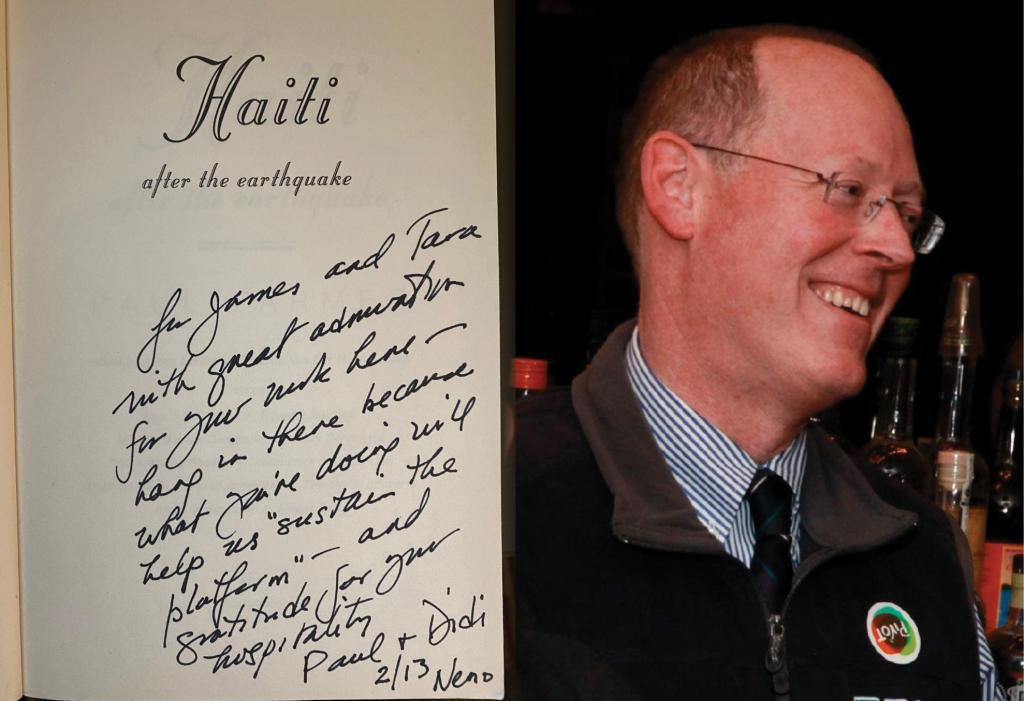 Haiti
after the earthquake
for James and Tara
with great admiration
for your work here –
hang in there because
what you're doing will
help us "sustain the
platform" – and
gratitude for your
hospitality
Paul + Didi
2/13 Nemo
PIVOT